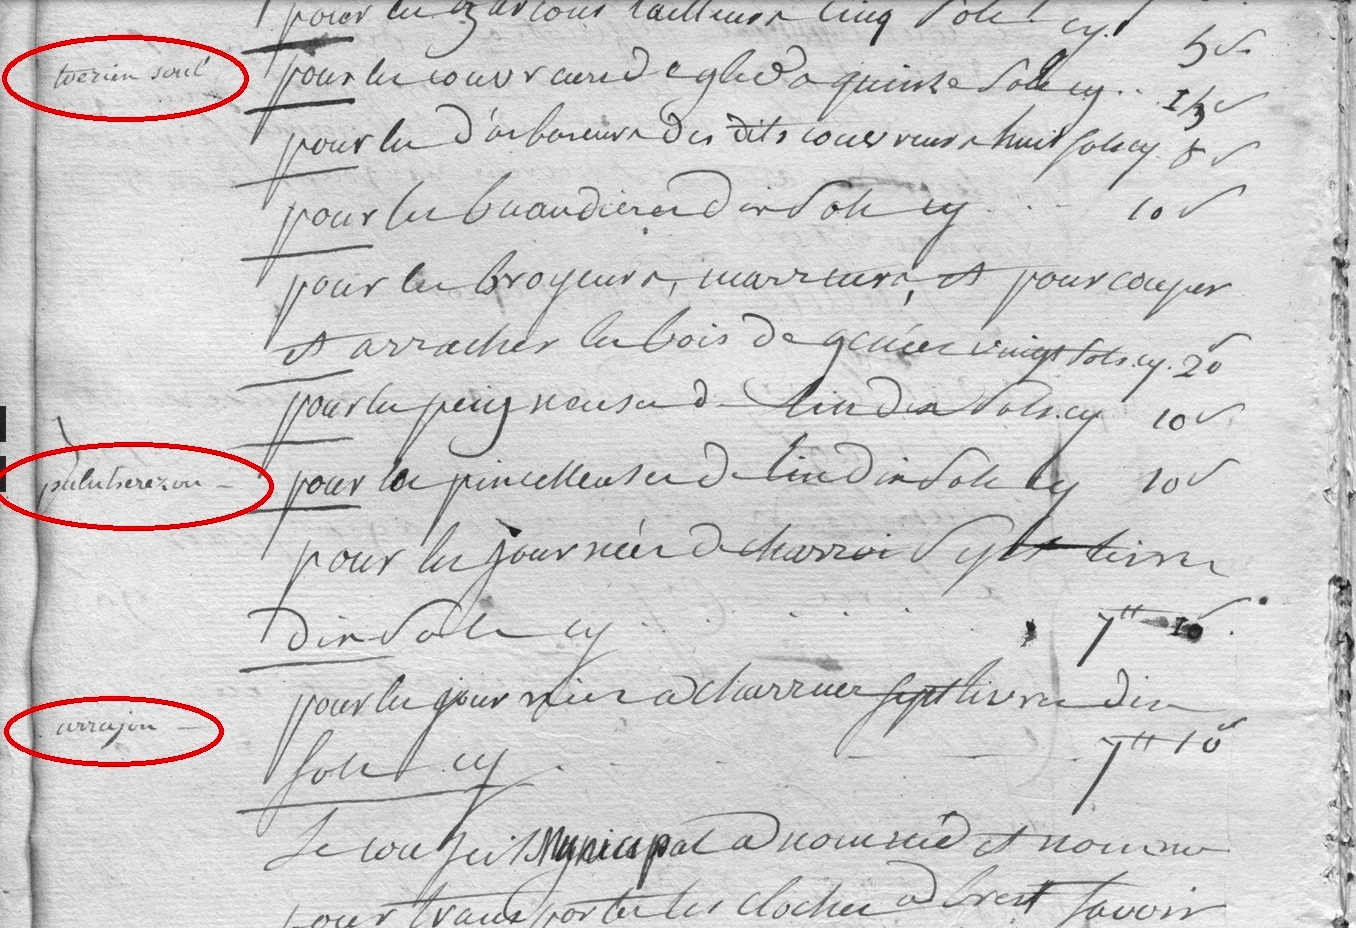 pour les garcons tailleurs cinq Sols cy. 5 s
toerien soul
pour les couvreurs de gled a quinze Sols cy .. 15 s
pour les darbareurs des dits couvreurs huit sols cy. 8 s
pour les buandieres dix Sols cy ... 10 s
pour les broyeurs, marreurs, et pour couper
et arracher les bois de genée vingt sols. cy. 20 s
pour les peigneuses de lin dix Sols. cy 10 s
paluherezon -
pour les pincelleuses de lin dix Sols cy 10 s
pour les journées de charroi Sept livres
dix Sols cy . . . . 7 tt 10 s
pour les journées a charruer sept livres dix
arrajou -
Sols cy . . . 7 tt 10 s
Le conseil Municipal a nommé et nomme
pour transporter les cloches a brest Savoir